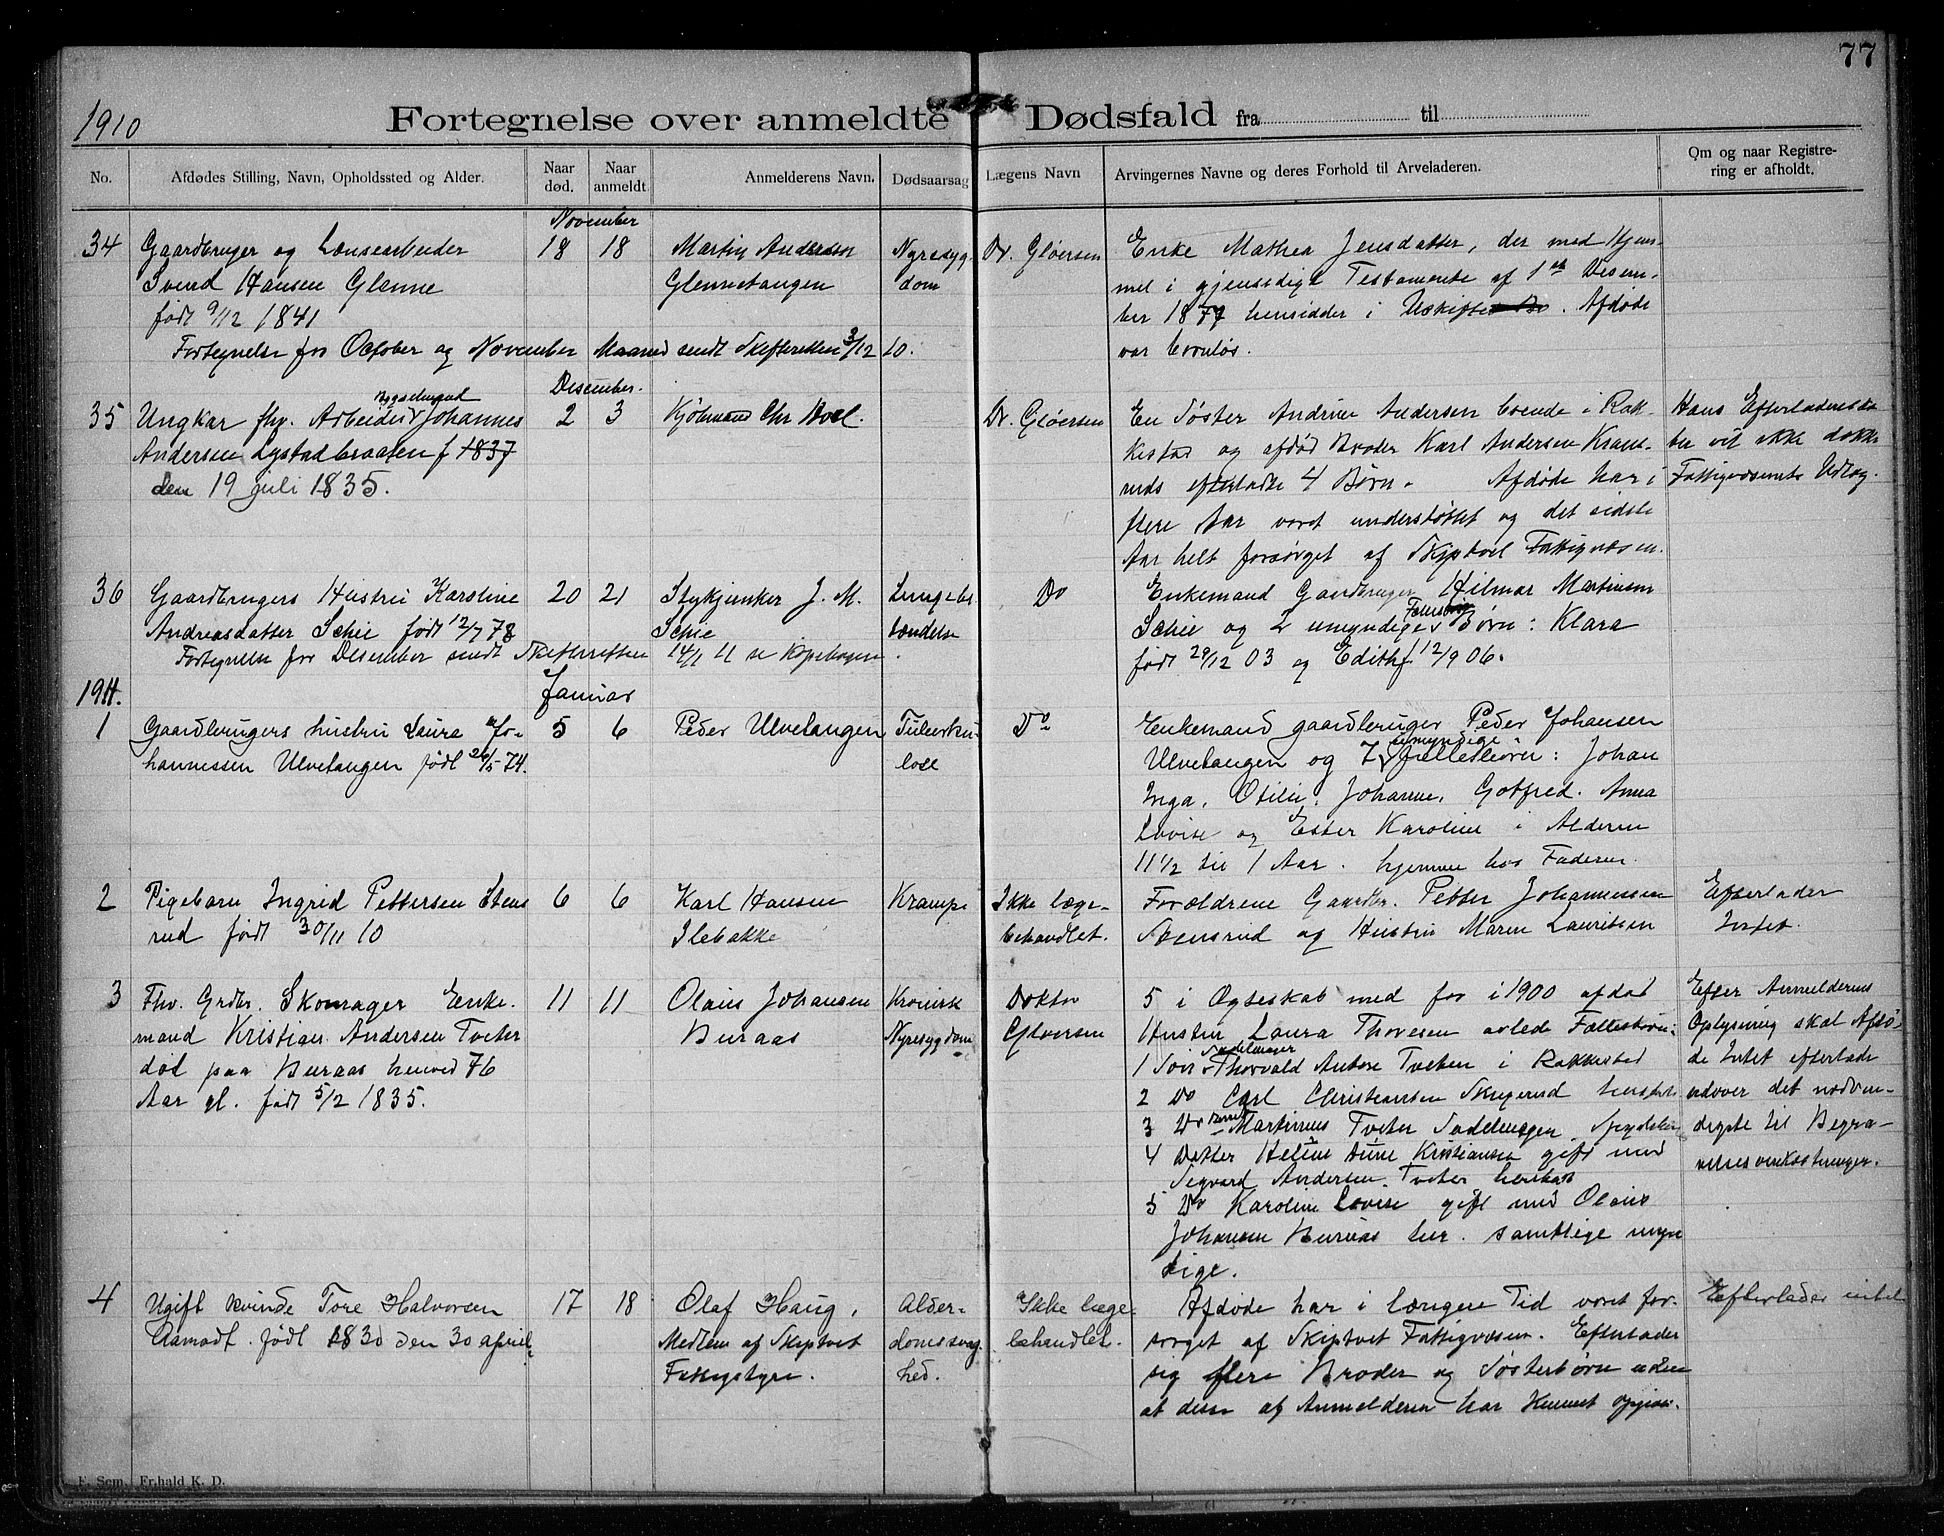 77
1910
Fortegnelse over anmeldte Dødsfald fra til
No.
Afdødes Stilling, Navn, Opholdssted og Alder.
Naar død.
Naar anmeldt.
Anmelderens Navn.
Dødsaarsag
Lægens Navn
Arvingernes Navne og deres Forhold til Arveladeren.
Om og naar Registre-
ring er afholdt.
November
34
Gaardbruger og Lænsearbeider
Svend Hansen Glenne
født 9/12 1841
18
18
Martin Andersen
Glennetangen
Nyresyg-
dom
Dr. Gløersen
Enke Mathea Jensdatter, der med Hjem-
mel i gjensidigt Testamente af 1st Desem-
ber 1877 hensidder i Uskifte. Afdøde
var barnløs.
Fortegnelse for October og November Maaned sendt Skifteretten 3/12 10.
Desember.
35
Ungkar fhv. Arbeider Bygselmand Johannes
Andersen Lystadbraaten f 1837
den 19 juli 1835.
2
3
Kjøbmand Chr Hoel.
Dr. Gløersen
En Søster Andrine Andersen boende i Rak-
kestad og afdød Broder Karl Andersen
efterladte 4 Børn. Afdøde har i
flere Aar været understøttet og det sidste
Aar helt forsørget af Skiptvet Fattigvæsen.
Hans Efterladenska-
ber vil ikke dække
Fattigvæsenets Udlæg.
36
Gaardbrugers Hustru Karoline
Andreasdatter Schie født 12/7 78
20
21
Stykjunker J. M.
Schie
Lungebe-
tændelse
Do
Enkemand Gaardbruger Hilmar Martinsen
Schie og 2 umyndige Fælles Børn: Klara
født 29/12 03 og Edith f 12/9 06.
Fortegnelse for Desember sendt Skifteretten 14/1 11 se Kopibogen.
1911.
Januar
1
Gaardbrugers hustru Laura Jo-
hannessen Ulvetangen født 26/5 74.
5
6
Peder Ulvetangen
Tuberku-
lose
Do
Enkemand gaardbruger Peder Johansen
Ulvetangen og 7 umyndige fællesbørn: Johan
Inga, Otilie, Johanne, Gotfred. Anna
Lovise og Ester Karoline i Alderen
11 1/2 til 1 Aar. hjemme hos Faderen.
2
Pigebarn Ingrid Pettersen Stens
rud født 30/11 10
6
6
Karl Hansen
Ilebakke
Krampe
Ikke læge-
behandlet.
Forældrene Gaardbr. Petter Johannessen
Stensrud og Hustru Maren Lauritsen
Efterlader
Intet.
3
Fhv. Grdbr. Skomager Enke-
mand Kristian Andersen Tveter
død paa Buraas henved 76
Aar gl. født 5/2 1835.
11
11
Olaus Johansen
Buraas
Kronisk
Nyresygdom
Doktor
Gløersen
5 i Ægteskab med for i 1900 afdød
Hustru Laura Thoresen avlede Fællesbørn:
1 Søn Sadelmager Thorvald Anton Tveten i Rakkestad
2 Do Carl Christiansen
3 Do Martinius Tveter Sadelmager, Spydeberg
4 Datter Heline Kristiansen gift med
Sigvard Andersen Tveter
5 Do Karoline Lovise gift med Olaus
Johansen Buraas her. samtlige myn
dige.
Efter Anmelderens
Oplysning skal Afdø-
de Intet efterlade
udover det nødven-
digste til Begra-
velsesomkostninger.
4
Ugift kvinde Tore Halvorsen
Aamodt. født 1830 den 30 april.
17
18
Olaf Haug,
Medlem af Skiptvet
Fattigstyre.
Alder-
domssvag
hed.
Ikke læge-
behandlet.
Afdøde har i længere Tid været for-
sørget af Skiptvet Fattigvæsen. Efterlader
sig flere Broder og Søsterbørn uden
at disse af Anmelderen har kunnet opgives.
Efterlader intet
F. Sem, Fr.hald K. D.